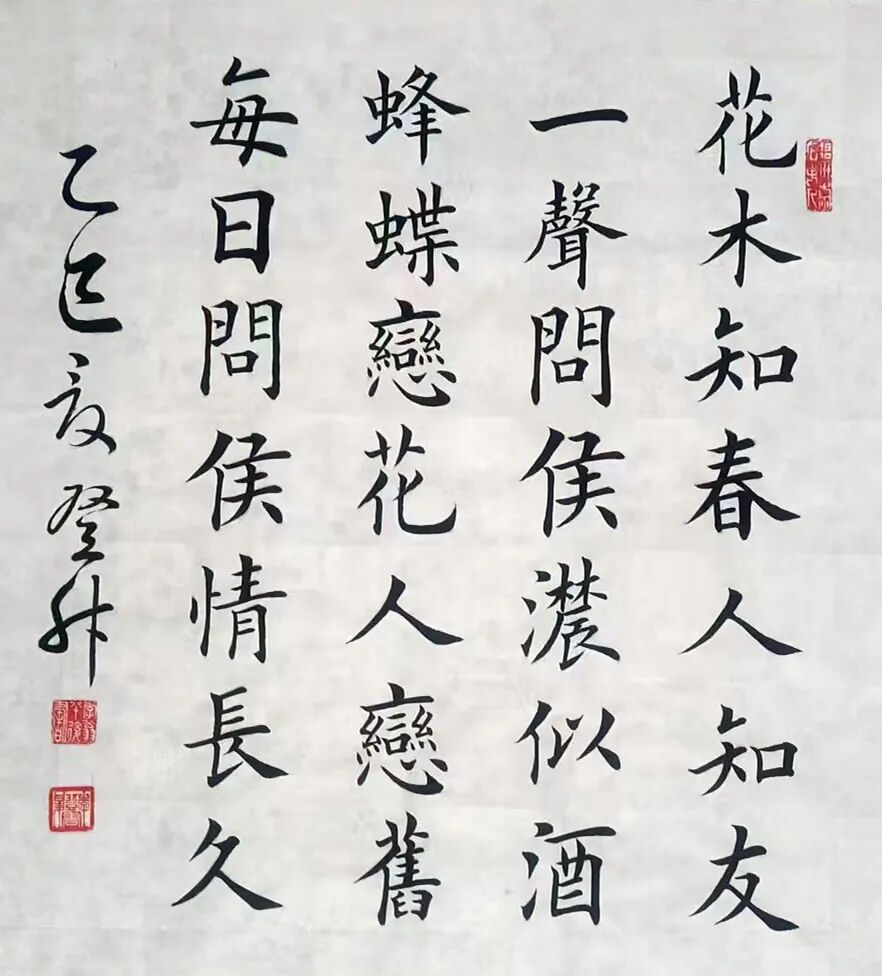 花木知春人知友
一聲問侯濃似酒
蜂蝶戀花人戀舊
每日問侯情長久
乙巳夏登升